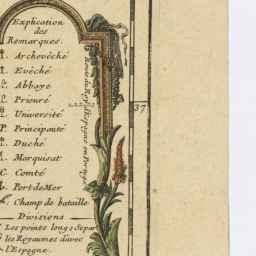 Explication
des
Remarques.
Archevêché
Evêché
Abbaye
Prieuré
Université
P. Principauté
Duché
Marquisat
C. Comté
Port de Mer
Champ de bataille
Divisions
Les points longs Sepa
les Royaumes d'avec
l'Espagne.
37